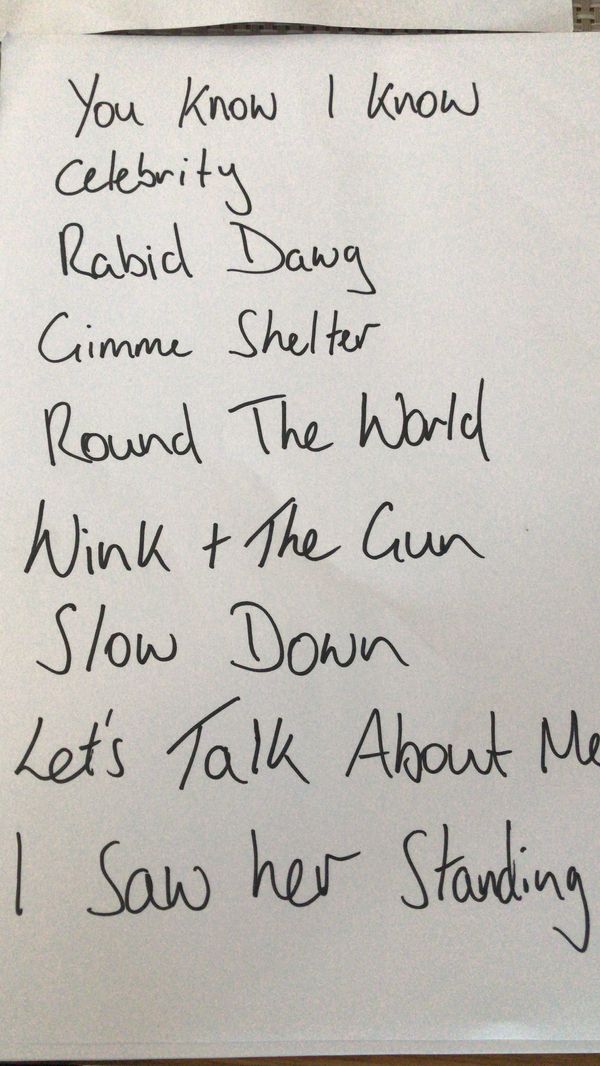 You Know I Know
Celebrity
Rabid Dawg
Gimme Shelter
Round The World
Wink + The Gun
Slow Down
Let's Talk About Me
I Saw her Standing